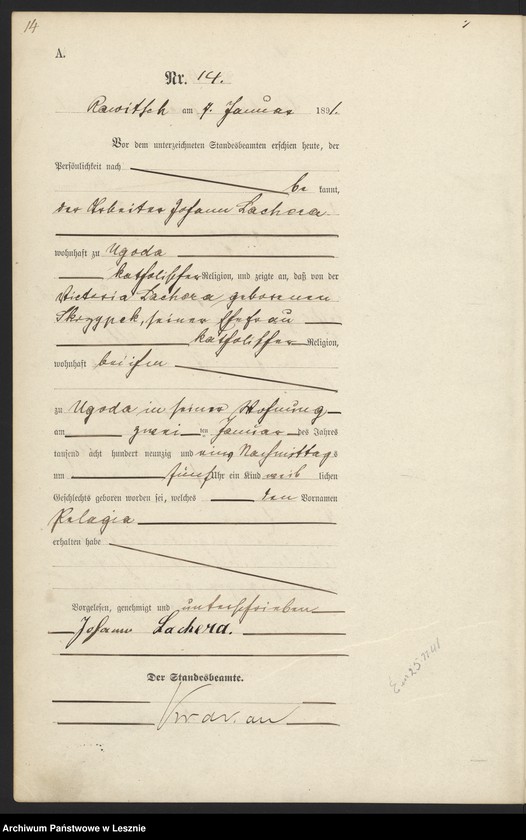 14
A.
Nr. 14.
Rawitsch am 7. Januar 1891.
Vor dem unterzeichneten Standesbeamten erschien heute, der
Persönlichkeit nach
be kannt,
der Arbeiter Johann Lachera
wohnhaft zu Ugoda
katholischer Religion, und zeigte an, daß von der
Victoria Lachera geborenen
Skrzypek, seiner Ehefrau
katholischer Religion,
wohnhaft bei ihm
zu Ugoda in seiner Wohnung
am zwei ten Januar des Jahres
tausend acht hundert neunzig und eins Nachmittags
um fünf Uhr ein Kind weib lichen
Geschlechts geboren worden sei, welches den Vornamen
Pelagia
erhalten habe
Vorgelesen, genehmigt und unterschrieben
Johann Lachera.
Der Standesbeamte.
Archiwum Państwowe w Lesznie